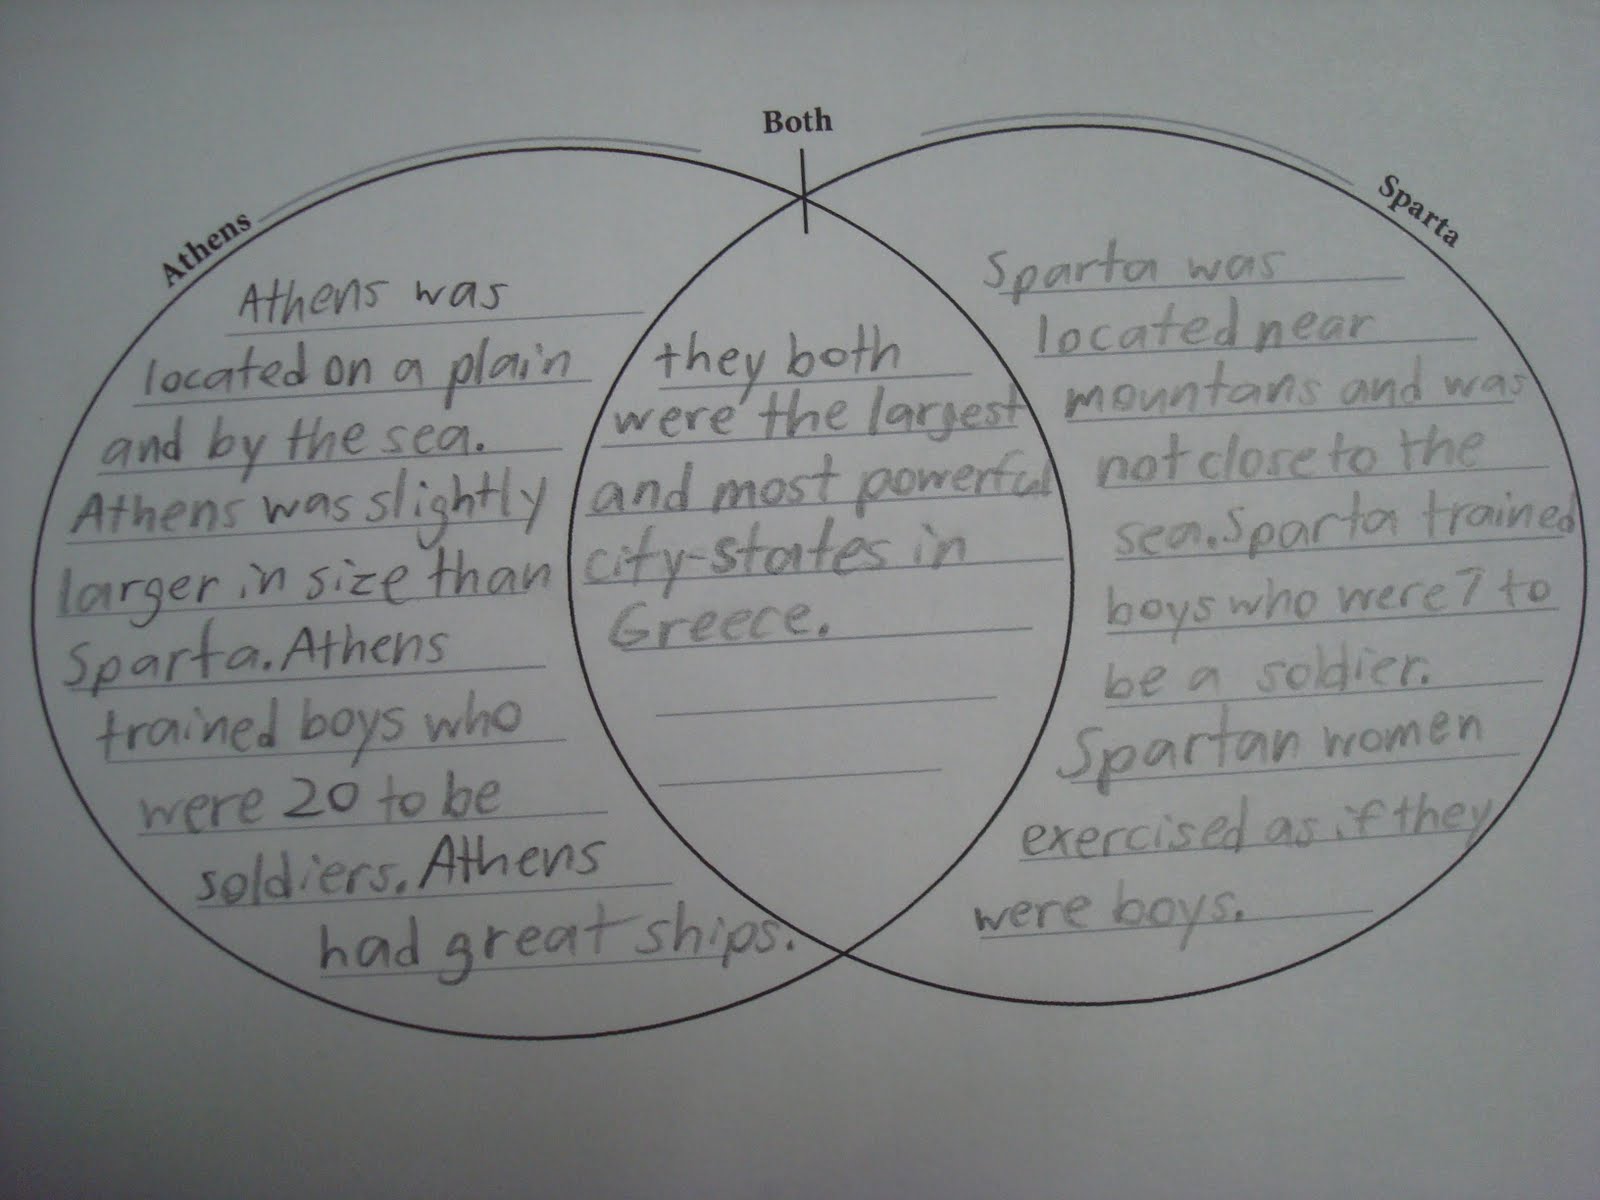 Both
Athens
Sparta
Athens was
located on a plain
and by the sea.
Athens was slightly
larger in size than
Sparta. Athens
trained boys who
were 20 to be
soldiers. Athens
had great ships.
they both
were the largest
and most powerful
city-states in
Greece.
Sparta was
located near
mountans and was
not close to the
sea. Sparta trained
boys who were 7 to
be a soldier.
Spartan women
exercised as if they
were boys.